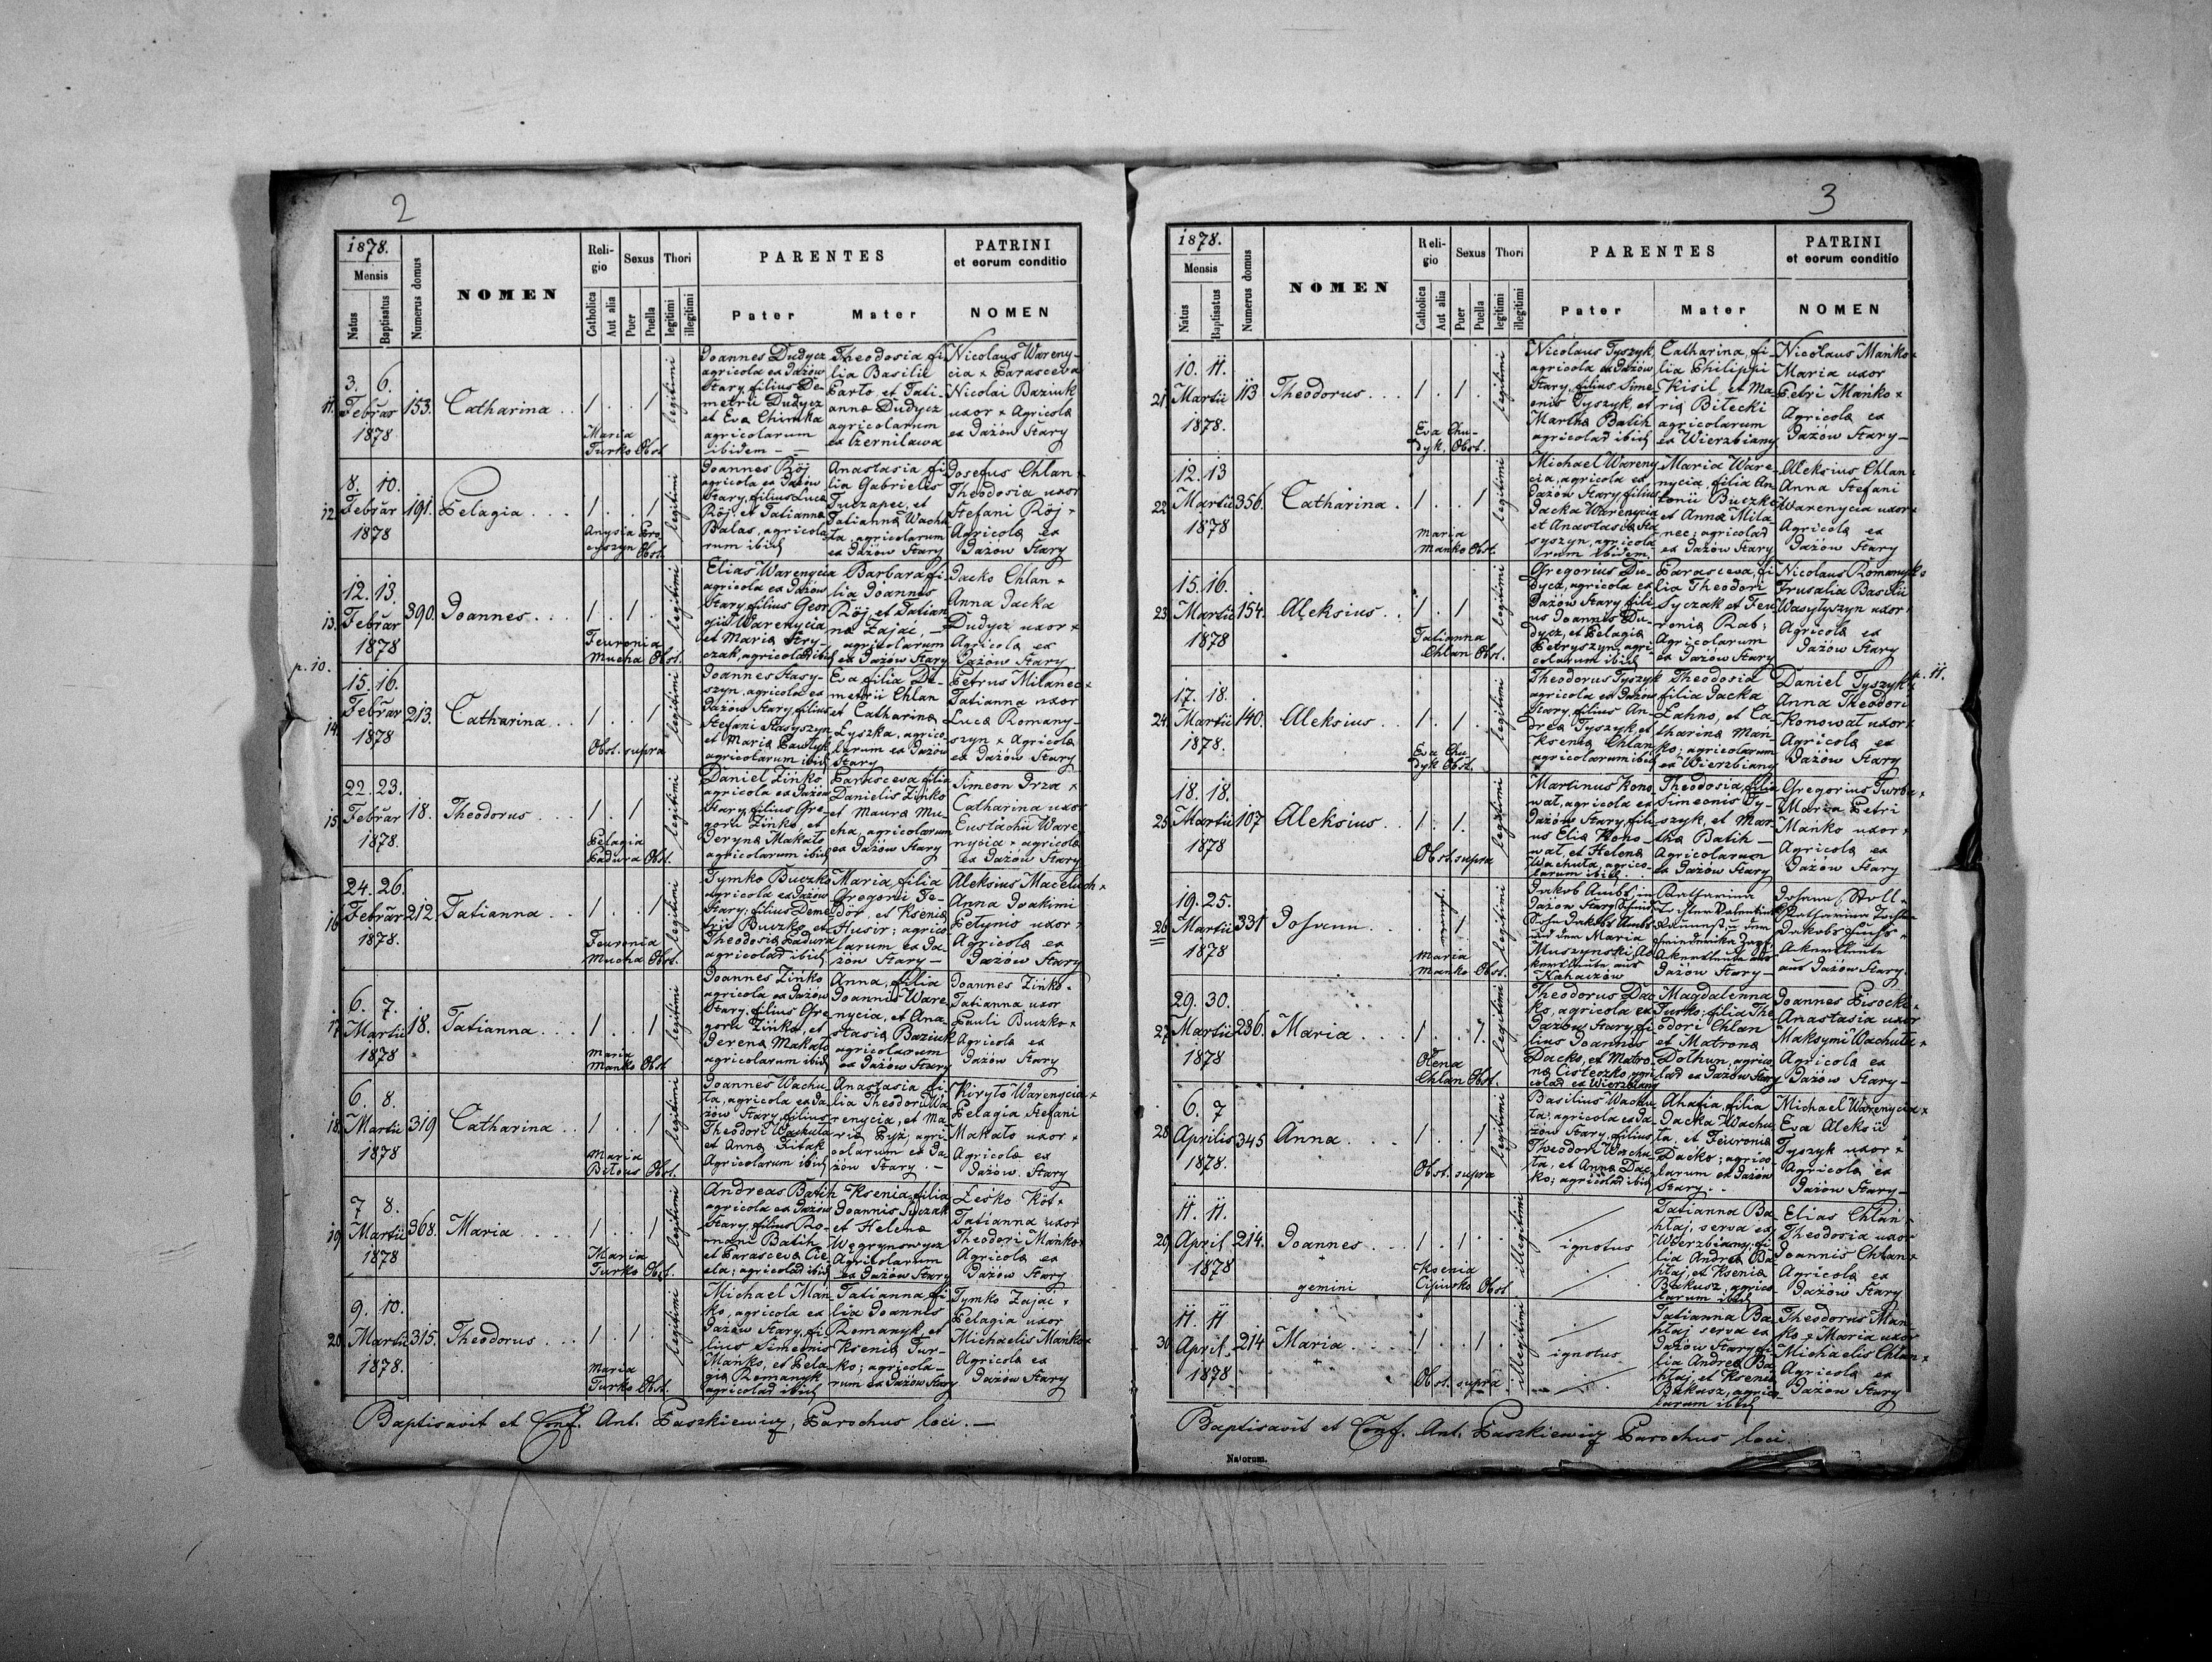 2
1878.
Mensis
Natus
Baptisatus
Numerus domus
NOMEN
Reli-
gio
Catholica
Aut alia
Sexus
Puer
Puella
Thori
legitimi
illegitimi
PARENTES
Pater
Mater
PATRINI
et eorum conditio
NOMEN
11.
3. 6.
Febŕar
1878
153.
Catharina . .
1 . . 1
Maria
Turko Obst.
legitimi
Joannes Dudycz
agricola ex Jażów
Stary, filius De-
metrii Dudycz
et Eva Chimka
agricolarum
ibidem - -
Theodosia fi-
lia Basilii
Parto et Tati-
anna Dudycz
agricolarum
ex Czernilawa
Nicolaus Wareny-
cia + Parasceva
Nicolai Baziuk
uxor + Agricola
ex Jażów Stary
12.
8. 10.
Febŕar
1878
191.
Pelagia . . .
1 . . 1
Anysia Pro-
cyszyn Obst.
legitimi
Joannes Rój
agricola ex Jażów
Stary, filius Luca
Rój, et Tatianna
Balas, agricola-
rum ibid
Anastasia fi-
lia Gabrielis
Tuczapec, et
Tatianna Wachu-
ta, agricolarum
ex Jażów Stary
Josefus Chlan +
Theodosia uxor
Stefani Rój +
Agricola ex
Jażów Stary
13.
12. 13.
Febŕar
1878
390.
Joannes . . .
1 . 1 .
Feuronia
Mucha Obst.
legitimi
Elias Warenycia
agricola ex Jażów
Stary, filius Geor-
gii Warenycia
et Maria Hry-
czak, agricolar ibid
Barbara fi-
lia Joannis
Rój, et Tatian-
na Zając, -
agricolarum
ex Jażów Stary
Jacko Chlan +
Anna Jacka
Dudycz uxor +
Agricola ex
Jażów Stary
p. 10.
14.
15. 16.
Febŕar
1878
213.
Catharina . .
1 . . 1
Obst. supra
legitimi
Joannes Stasy-
szyn, agricola ex
Jażów Stary, filius
Stefani Stasyszyn
et Maria Pawłyk
agricolarum ibid
Eva filia De-
metrii Chlan
et Catharina
Łyszka, agrico-
larum ex Jażów
Stary
Petrus Milanec +
Tatianna uxor
Luca Romany-
szyn + Agricola
ex Jażów Stary
15.
22. 23.
Febŕar
1878.
18.
Theodorus . . .
1 . 1
Pelagia
Padura Obst.
legitimi
Daniel Zińko
agricola ex Jażów
Stary, filius Gre-
gorii Zińko, et
Jeryna Makało
agricolarum ibid
Parasceva filia
Danielis Zińko
et Maura Mu-
cha, agricolarum
ex Jażów Stary
Simeon Irza +
Catharina uxor
Eustachii Ware-
nycia + agricola
ex Jażów Stary
16.
24. 26.
Febŕar
1878.
212.
Tatianna . .
1 . . 1
Feuronia
Mucha Obst.
legitimi
Tymko Buczko
agricola ex Jażów
Stary; filius Deme-
trii Buczko et
Theodosia Padura
agricolar ibid
Maria, filia
Gregorii Fe-
dor, et Ksenia
Husir; agrico-
larum ex Ja-
żów Stary -
Aleksius Maceluch +
Anna Joakimi
Petynio uxor +
Agricola ex
Jażów Stary
17.
6. 7.
Martii
1878
18.
Tatianna . . .
1 . . 1
Maria
Mańko Obst.
legitimi
Joannes Zińko
agricola ex Jażów
Stary, filius Gre-
gorii Zińko, et
Jerena Makało
agricolarum ibid
Anna, filia
Joannis Ware-
nycia, et Ana-
stasia Baziuk
agricolarum
ex Jażów Stary
Joannes Zińko +
Tatianna uxor
Pauli Buczko +
Agricola ex
Jażów Stary
18.
6. 8.
Martii
1878
319
Catharina . .
1 . . 1
Maria
Biłous Obst.
legitimi
Joannes Wachu-
ta, agricola ex Ja-
żów Stary, filius
Theodori Wachuta
et Anna Fitak
Agricolarum ibid
Anastasia fi-
lia Theodori Wa-
renycia, et Ma-
ria Pyż, agri-
colarum ex Ja-
żów Stary. -
Kiryło Warenycia +
Pelagia Stefani
Makało uxor +
Agricola ex
Jażów Stary
19.
7 8.
Martii
1878
368.
Maria . . . .
1 . . 1
Maria
Turko Obst.
legitimi
Andreas Batih
agricola ex Jażów
Stary, filius Ro-
mani Batih
et Parasceva Cie-
ela; agricolar ibid
Ksenia, filia
Joannis Syczak
et Helena
Węgrynowycz
Agricolarum
ex Jażów Stary
Leśko Kót +
Tatianna uxor
Theodori Mańko +
Agricola ex
Jażów Stary
20.
9. 10.
Martii
1878.
315.
Theodorus . . .
1 . 1 .
Maria
Turko Obst.
legitimi
Michael Mań-
ko, agricola ex
Jażów Stary, fi-
lius Simeonis
Mańko, et Pela-
gia Romanyk
agricolar ibid
Tatianna fi-
lia Joannis
Romanyk, et
Ksenia Tur-
ko; agricola-
rum ex Jażów Stary
Tymko Zając +
Pelagia uxor
Michaelis Mańko +
Agricola ex
Jażów Stary
Baptisavit et Conf. Ant. Paszkiewicz, Parochus loci. -
3
1878.
Mensis
Natus
Baptisatus
Numerus domus
NOMEN
Reli-
gio
Catholica
Aut alia
Sexus
Puer
Puella
Thori
legitimi
illegitimi
PARENTES
Pater
Mater
PATRINI
et eorum conditio
NOMEN
21.
10. 11.
Martii
1878.
113
Theodorus . . .
1 . 1 .
Eva Chu-
dyk, Obst.
legitimi
Nicolaus Tyszyk,
agricola ex Jażów
Stary, filius Sime-
onis Tyszyk, et
Martha Batih
agricolar ibid
Catharina, fi-
lia Philippi
Kisil, et Ma-
ria Biłecki
agricolarum
ex Wierzbiany
Nicolaus Mańko +
Maria uxor
Petri Mańko +
Agricola ex
Jażów Stary -
22.
12. 13
Martii
1878
356.
Catharina .
1 . . 1
Maria
Mańko Obst.
legitimi
Michael Wareny-
cia, agricola ex
Jażów Stary, filius
Jacka Warenycia
et Anastasia Sta-
syszyn, agricola-
rum ibidem.
Maria Ware-
nycia, filia An-
tonii Buczko
et Anna Mila-
nec; agricolar
ex Jażów Stary
Aleksius Chlan +
Anna Stefani
Warenycia uxor +
Agricola ex
Jażów Stary
23.
15. 16.
Martii
1878
154.
Aleksius . .
1 . 1
Tatianna
Chlan Obst.
legitimi
Gregorius Du-
dycz, agricola ex
Jażów Stary, fili-
us Joannis Du-
dycz, et Pelagia
Petryszyn, agri-
colarum ibid
Parasceva, fi-
lia Theodori
Syczak et Feu-
ronia Rab;
Agricolarum
ex Jażów Stary
Nicolaus Romanyk +
Frusalia Basilii
Wasyłyszyn uxor +
Agricola ex
Jażów Stary
p. 11.
24.
17. 18.
Martii
1878.
140.
Aleksius . .
1 . 1 .
Eva Chu-
dyk Obst.
legitimi
Theodorus Tyszyk
agricola ex Jażów
Stary, filius An-
drea Tyszyk, et
Ksenia Chlan
agricolarum ibid
Theodosia
filia Jacka
Łahno, et Ca-
tharina Mań-
ko; agricolarum
ex Wierzbiany
Daniel Tyszyk +
Anna Theodori
Konowal uxor +
Agricola ex
Jażów Stary
25.
18. 18.
Martii
1878
107
Aleksius . .
1 . 1.
Obst. supra
legitimi
Martinus Kono-
wal, agricola ex
Jażów Stary, fili-
us Elia Kono-
wal, et Helena
Wachuta, agrico-
larum ibid.
Theodosia, filia
Simeonis Ty-
szyk, et Mar-
tha Batih -
Agricolarum
ex Jażów Stary
Gregorius Turko +
Maria Petri
Mańko uxor +
Agricola ex
Jażów Stary
26.
19. 25.
Martii
1878
331
Johann . . .
. 1
Maria
Mańko Obst.
legitimi
Jakob Ambs, in
Jażów Stary Schmied
Sohn Jakobs Ambs
und der Maria
Muszynski, Ac-
kersleute aus
Kahaczów
Katharina
Tochter Valentins
der
Friederika
Ackersleute aus
Jażów Stary -
Johann Woll +
Katharina Tochter
Jakobs Fuchs +
Ackersleute
aus Jażów Stary.
27.
29. 30.
Martii
1878
286.
Maria . . . .
1 . . 1.
Olena
Chlan Obst.
legitimi
Theodorus Dac-
ko, agricola ex
Jażów Stary, fi-
lius Joannis
Dacko, et Matro-
na Cisteczko, agri-
colar ex Wierzbiany
Magdalenna
Turko; filia The-
odori Chlan
et Matrona
Dolhun, agrico-
lar ex Jażów Stary
Joannes Pisocki +
Anastasia uxor
Maksymi Wachuta +
Agricola ex
Jażów Stary -
28.
6. 7
Aprilis
1878.
345
Anna . . . .
1 . . 1
Obst. supra
legitimi
Basilius Wachu-
ta, agricola ex Ja-
żów Stary, filius
Theodori Wachu-
ta, et Anna Dac-
ko; agricolar ibid
Ahafia, filia
Jacka Wachu-
ta, et Feuronia
Dacko; agrico-
larum ex Jażów
Stary . .
Michael Warenycia +
Eva Aleksii
Tyszyk uxor +
Agricola ex
Jażów Stary -
29.
11. 11.
April.
1878
214.
Joannes . . .
+
gemini
1 . 1 .
Ksenia
Cipiwko Obst.
illegitimi
ignotus
Tatianna Ba-
hłaj, serva ex
Wierzbiany, fi-
lia Andrea Ba-
hłaj, et Ksenia
Bakusz, agrico-
larum ibid
Elias Chlan +
Theodosia uxor
Joannis Chlan +
Agricola ex
Jażów Stary
30.
11. 11
April.
1878
214
Maria . . . .
+
1 . . 1 .
Obst. supra
illegitimi
ignotus
Tatianna Ba-
hłaj serva ex
Jażów Stary fi-
lia Andrea Ba-
hłaj, et Ksenia
Bakusz, agrico-
larum ibid
Theodorus Mań-
ko + Maria uxor
Michaelis Chlan +
Agricola ex
Jażów Stary
Baptisavit et Conf. Ant. Paszkiewicz Parochus loci.
Natorum.